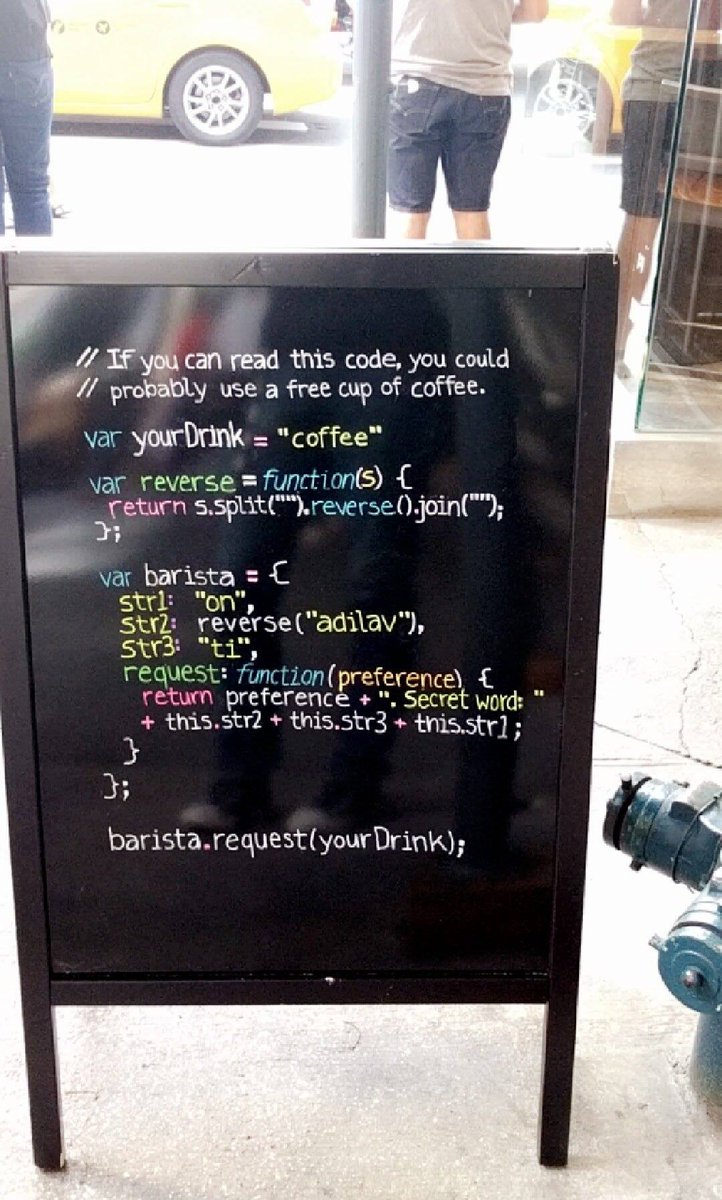 // If you can read this code, you could
// probably use a free cup of coffee.
var yourDrink = "coffee"
var reverse = function(s) {
return s.split("").reverse().join("");
};
var barista = {
str1: "on",
str2: reverse("adilav"),
str3: "ti",
request: function(preference) {
return preference + ". Secret word: "
+ this.str2 + this.str3 + this.str1;
}
};
barista.request(yourDrink);